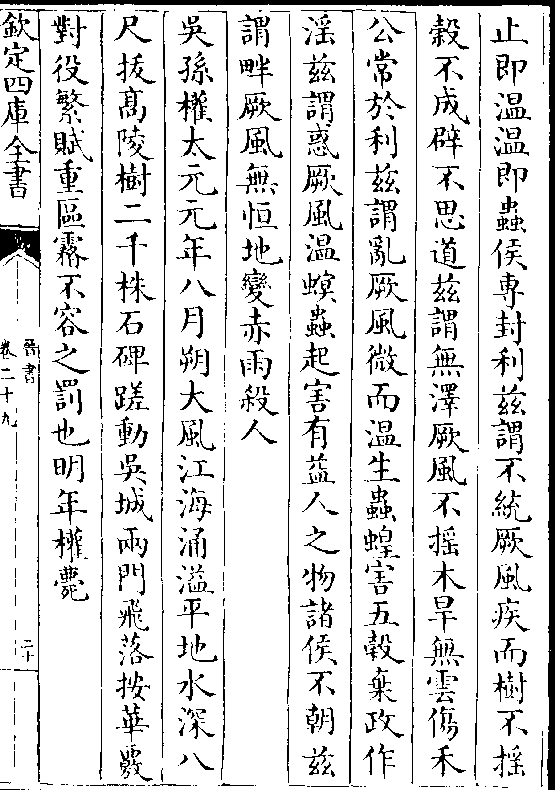 止即温温即蟲侯專封利兹謂不統厥風疾而樹不揺
穀不成辟不思道兹謂無澤厥風不揺木旱無雲傷禾
公常於利兹謂亂厥風微而温生蟲蝗害五穀棄政作
淫兹謂惑厥風温螟蟲起害有益人之物諸侯不朝兹
謂畔厥風無恒地變赤雨殺人
吳孫權太元元年八月朔大風江海涌溢平地水深八
尺拔髙陵樹二千株石碑蹉動吳城兩門飛落按華覈
對役繁賦重區霿不容之罰也明年權薨
欽定四庫全書
晉書
卷二十九
二十